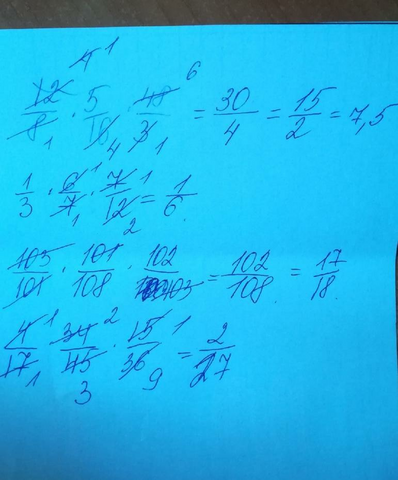 4 1 6
12/8 · 5/16 · 48/3 = 30/4 = 15/2 = 7,5
1 4 1
1/3 · 6/7 · 7/12 = 1/6
1 1 1 2
103/101 · 101/108 · 102/103 = 102/108 = 17/18
4/17 · 34/45 · 15/36 = 2/27
1 2 1 1 3 9